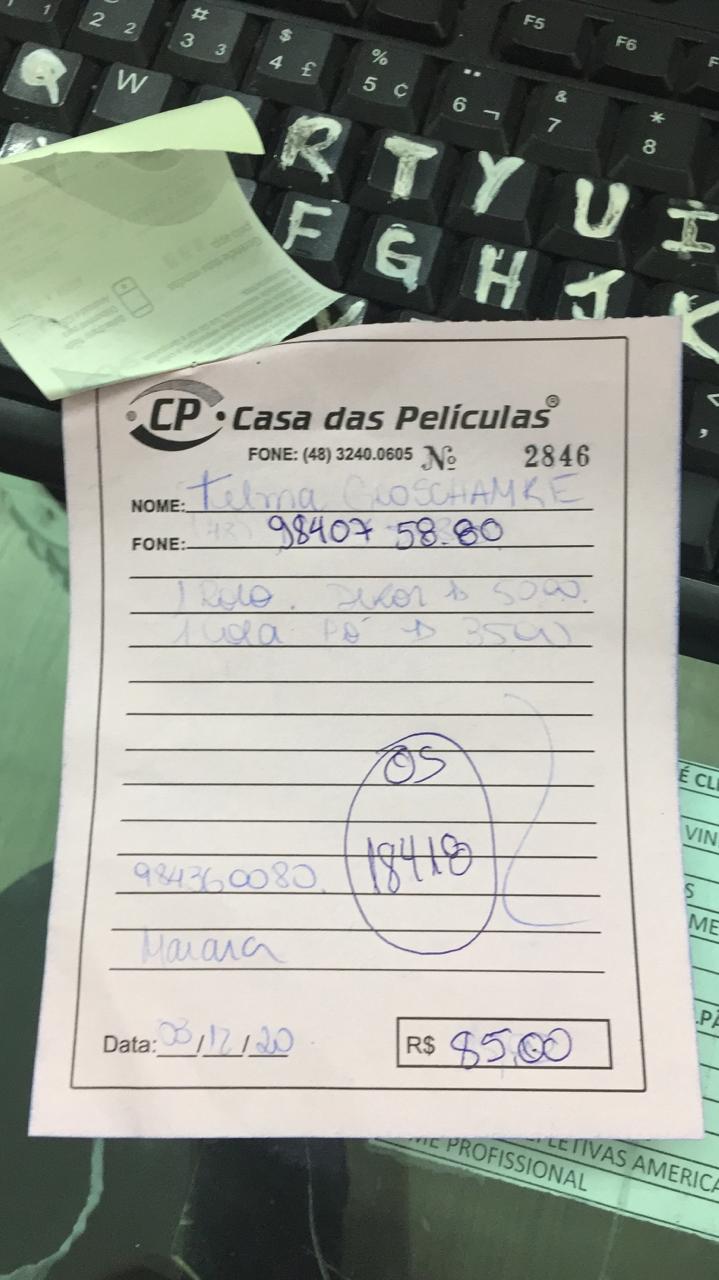 1 2 2 # 3 3 $ 4 £ % 5 ¢ ¨ 6 ¬ & 7 * 8 F5 F6
Q W R T Y U I
F G H J K
CP Casa das Películas®
FONE: (48) 3240.0605 Nº 2846
NOME: Telma
FONE: 98407 58.80
1 Rolo. 5000.
1 Pó 3500
OS
18418
984360080.
Maiara
Data: 03/12/20 R$ 85,00
É CL
VIN
S
ME
.PÁ
LETIVAS AMERICA
ME PROFISSIONAL